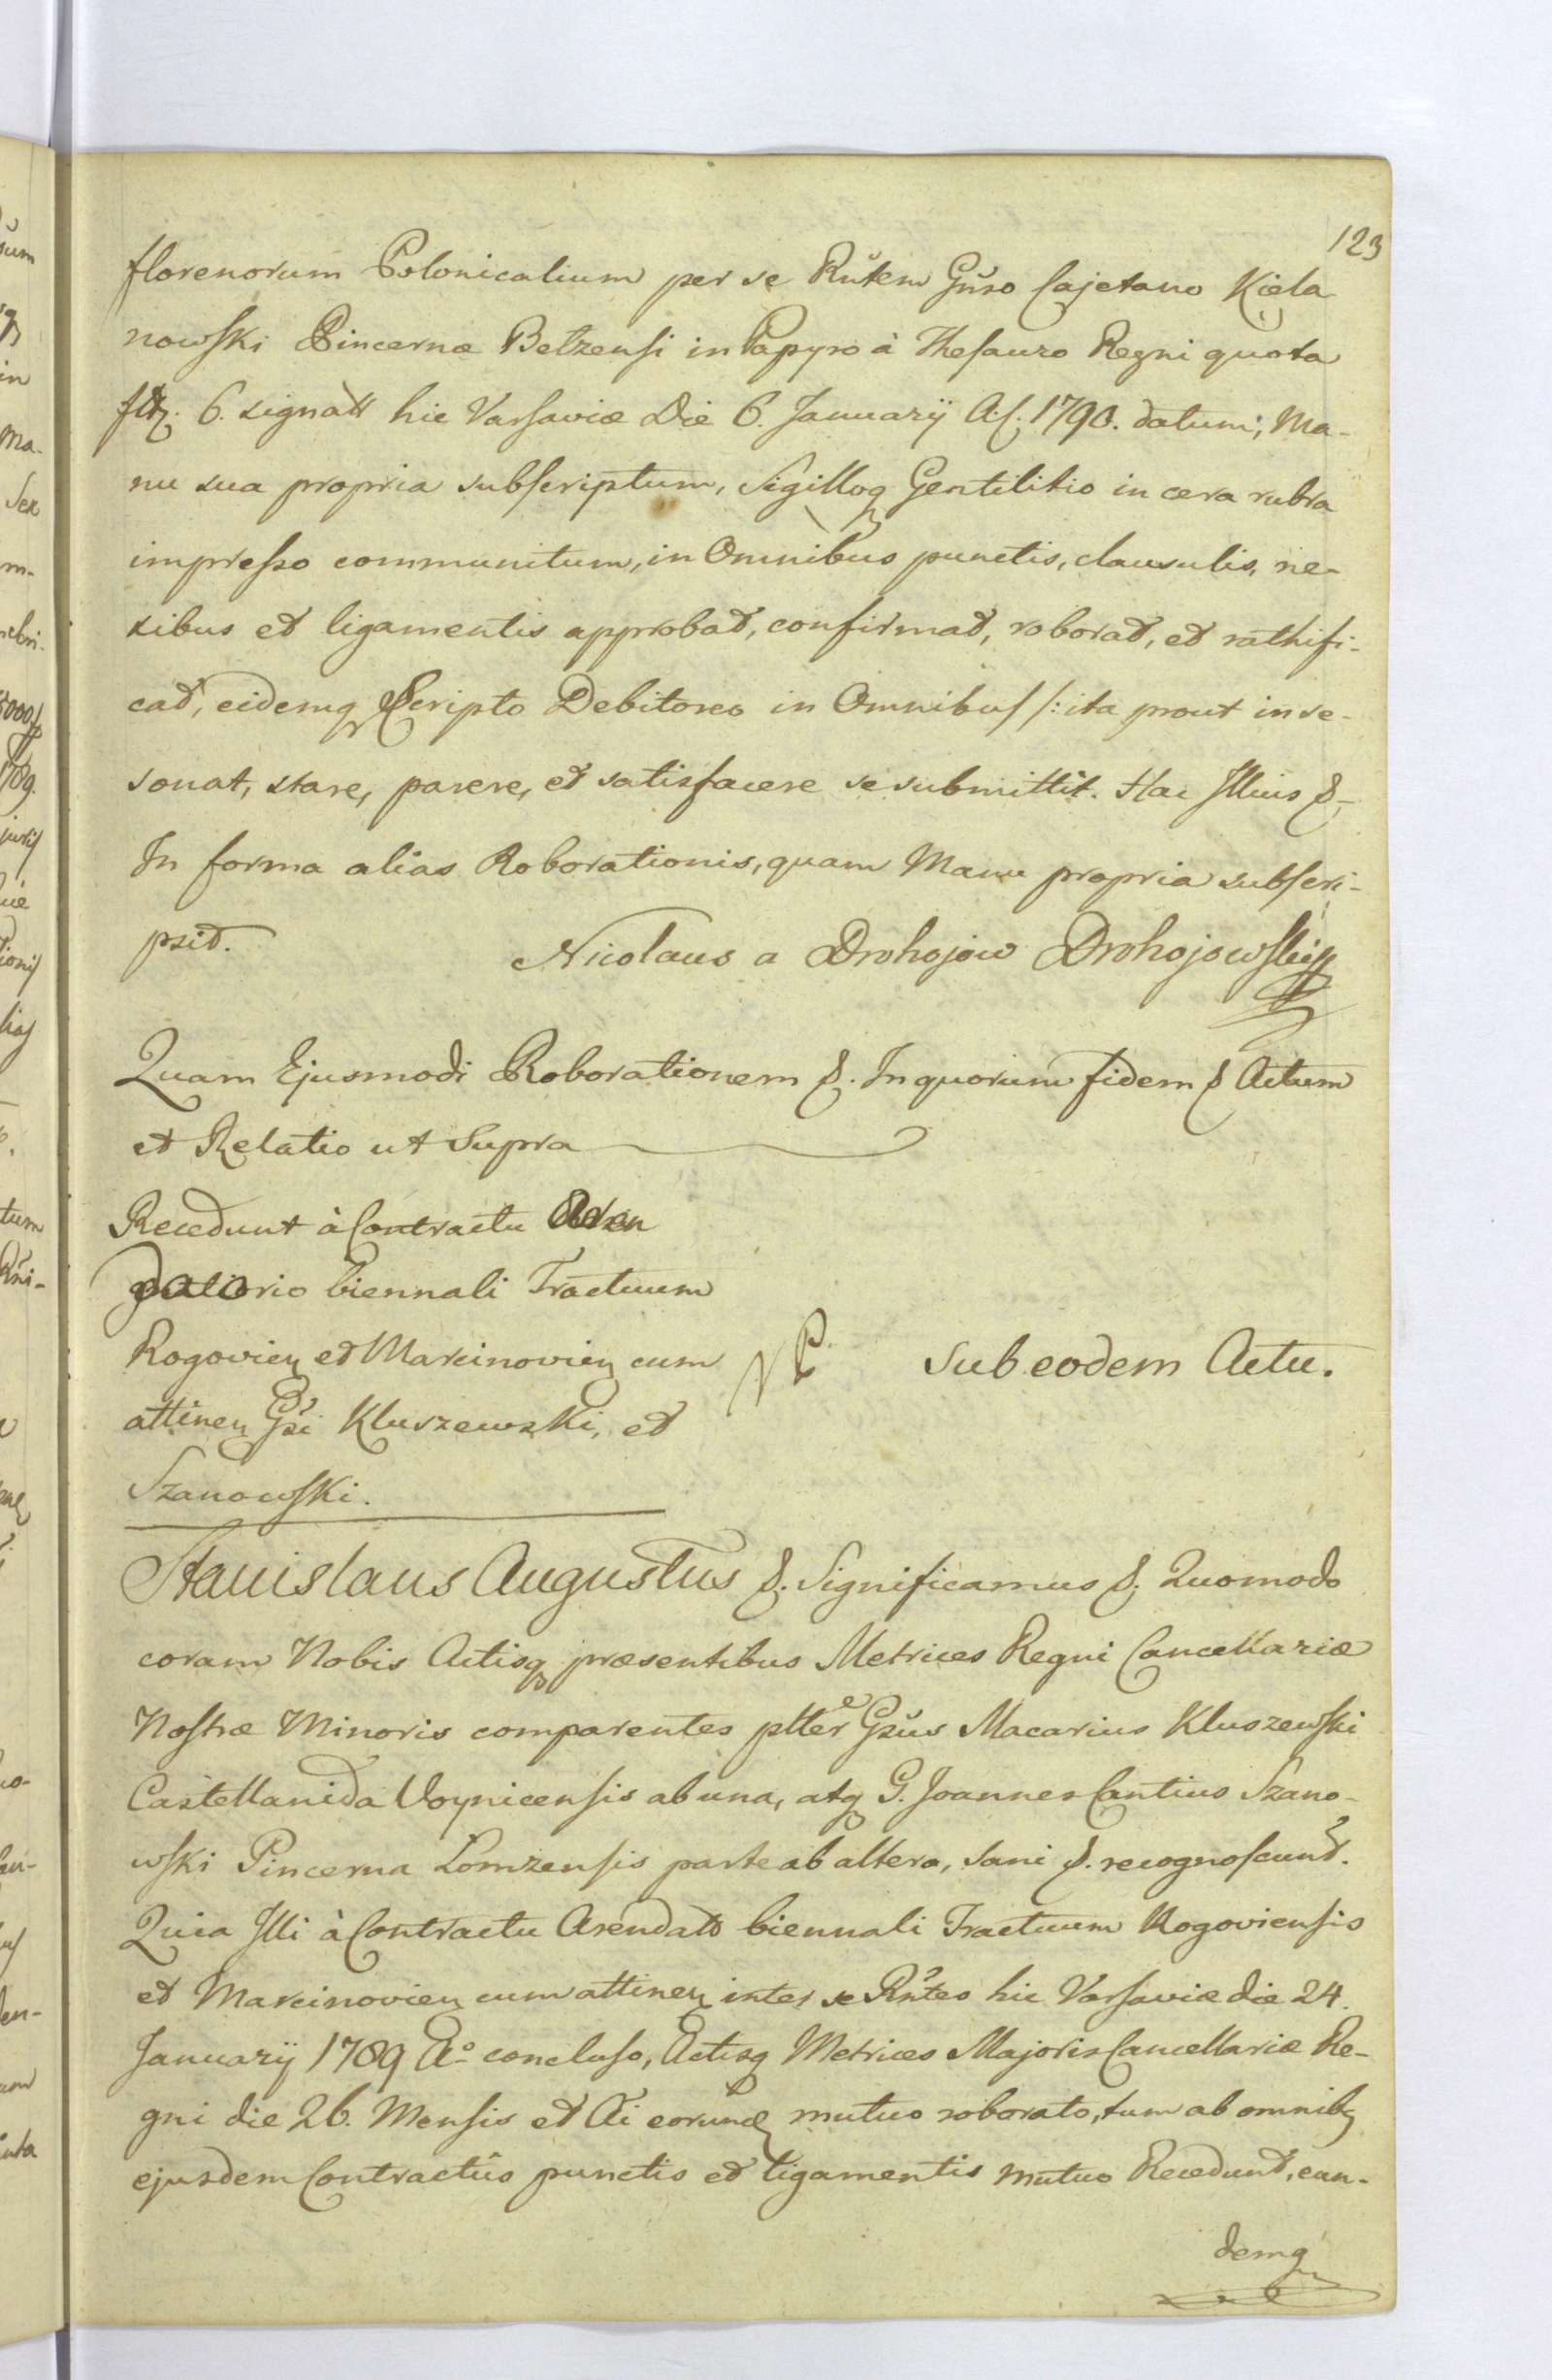 123
florenorum Polonicalium per se Rn̆tem Gn̆so Cajetano Kiela
nowski Pincernæ Betzensi in Papyro à Thesauro Regni quota
6. signatt hic Varsaviæ Die 6. Januarÿ A.C. 1790. datum; Ma-
nu sua propria subscriptum, Sigilloq Gentilitio in cera rubra
impresso communitum, in Omnibus punctis, clausulis, ne-
xibus et ligamentis approbat, confirmat, roborat, et rathifi-
cat, eidemq Scripto Debitoreo in Omnibus /: ita prout in se
sonat, stare, parere, et satisfacere se submittit. Hac Illius &
In forma alias Roborationis, quam Manu propria subscri-
psit. Nicolaus a Drohojow Drohojowski
Quam Ejusmodi Roborationem &. In quorum fidem & Actum
et Relatio ut Supra
Recedunt à Contractu Aren
datorio biennali Tractuum
Rogovien et Marcinovien cum
attinen Gsi Kluszewski, et
Szanowski.
Sub eodem Actu.
Stanislaus Augustus &. Significamus &. Quomodo
coram Nobis Actisq præsentibus Metrices Regni Cancellariæ
Nostræ Minoris comparentes pltter Gsus Macarius Kluszewski
Castellanida Voynicensis ab una, atq G. Joannes Cantius Szano-
wski Pincerna Lomzensis parte ab altera, sani &. recognoscunt.
Quia Illi à Contractu Arendato biennali Tractuum Rogoviensis
et Marcinovien cum attinen inter se Rntes hic Varsaviæ die 24.
Januarÿ 1789 Aº concluso, Actisq Metrices Majoris Cancellariæ Re-
gni die 26. Mensis et Ai eorund mutuo roborato, tum ab omnibq
ejusdem Contractûs punctis et ligamentis mutuo Recedunt, ean-
demq